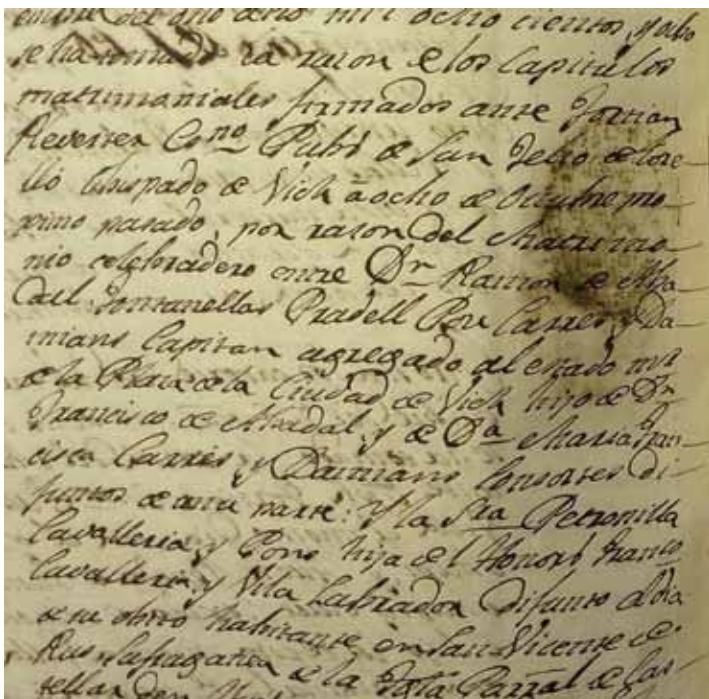 del año de mil ocho cientos, y ocho
se ha tomado la razon de los Capitulos
matrimoniales firmados ante Fortian
Reverter Esno. Pubo. de San Feliu de Tore-
lló Obispado de Vich a ocho de Octubre pro-
ximo pasado, por razon del Matrimo-
nio celebradero entre Dn. Ramon de Aba-
dal Fontanellas Pradell Pou Carres, y Da-
mians Capitan agregado al estado mr.
de la Plaza de la Ciudad de Vich hijo de Dn.
Francisco de Abadal, y de Da. Maria Fran-
cisca Carres y Damians Consortes di-
funtos de una parte: Y la Sra. Petronilla
Cavalleria, y Pons hija del Honorb. Franco.
Cavalleria y Vila Labrador difunto al dia
de su obito habitante en San Vicente de
Rus Sufraganea de la Igla. Parral. de Cas-
tellar